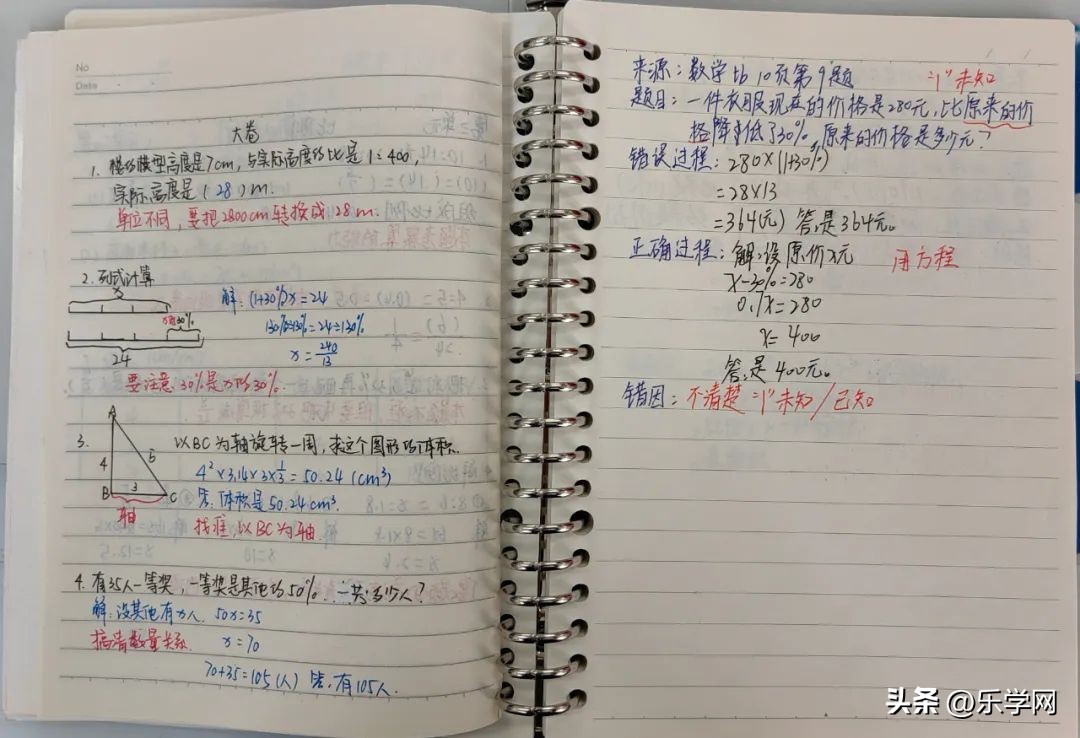 No
Date
大卷
1. 楼的模型高度是7cm,与实际高度的比是1:400,
实际高度是(28)m.
单位不同,要把2800cm转换成28m.
2. 列式计算
x
30%
24
解:(1+30%)x=24
130%÷130%=24÷130%
x=240/13
要注意:30%是x的30%.
3.
A
4
5
B
3
C
轴
以BC为轴旋转一周,求这个图形的体积.
4²×3.14×3×1/3=50.24(cm³)
答:体积是50.24cm³.
找准,以BC为轴.
4. 有35人一等奖,一等奖是其他的50%.一共多少人?
解:设其他有x人. 50x=35
搞清数量关系. x=70
70+35=105(人) 答:有105人.
来源:数学书10页第9题
题目:一件衣服现在的价格是280元,比原来的价
格降低了30%,原来的价格是多少元?
"1"未知
错误过程:280×(1+30%)
=28×13
=364(元) 答:是364元。
正确过程:解:设原价x元 用方程
x-30%=280
0.7x=280
x=400
答:是400元。
错因:不清楚"1"未知/已知
头条@乐学网